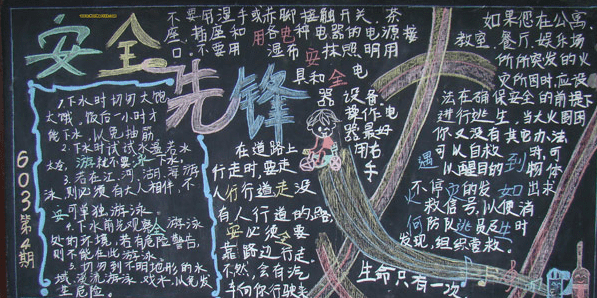 安全
先锋
603第4期
1.下水时切勿太饱
太饿。饭后一小时才
能下水,以免抽筋
2.下水时试试水温若水
太冷,游就不要泳下水。
3.若在江、河、湖、海游
泳,则必须有大人相伴,不
安可单独游泳。
4.下水前先观察全游泳
处的环境,若有危险警告,
则不能在此游泳。
5.切勿到不明地形的水
域、漂流游泳、戏水,以免发
生危险。
不要用湿手或赤脚接触开关、茶
座、插座和用各电种电器的电源接
口。不要用湿布安抹照明用
具和全电
器设备。
操作电
器最好
用右
手
在道路上
行走时,要走
人行行道走没
有人行道的路,
安必须要全
靠路边行走。
不然,会有汽
车向你行驶来
如果您在公寓、
教室、餐厅、娱乐场
所所突发的火
灾所困时,应设
法在确保安全的前提下
进行逃生,当大火围困
你又没有其它办法
遇可以自救到时,可
以醒目的物体
不停灾的发如出求
救信号,以便消
何防队逃员生时
发现,组织营救。
生命只有一次